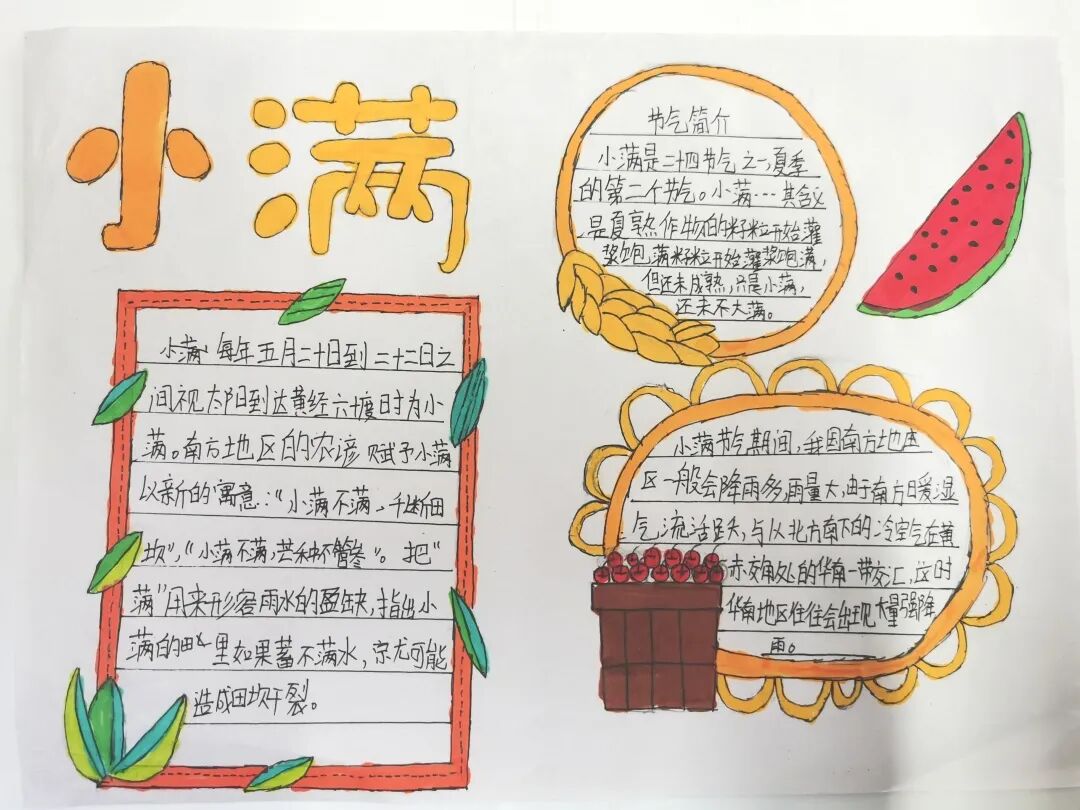 小满
小满、每年五月二十日到二十二日之
间视太阳到达黄经六十度时为小
满。南方地区的农谚赋予小满
以新的寓意:“小满不满,干断田
坎”,“小满不满,芒种不管”。把“
满”用来形容雨水的盈缺,指出小
满的时田里如果蓄不满水,就可能
造成田坎干裂。
节气简介
小满是二十四节气之一,夏季
的第二个节气。小满…其含义
是夏熟作物的籽粒开始灌
浆饱满籽粒开始灌浆饱满,
但还未成熟,只是小满,
还未不大满。
小满节气期间,我国南方地
区一般会降雨多,雨量大,由于南方日暖湿
气流活跃,与从北方南下的冷空气在黄
赤交角处的华南一带交汇,这时
华南地区往往会出现大量强降
雨。